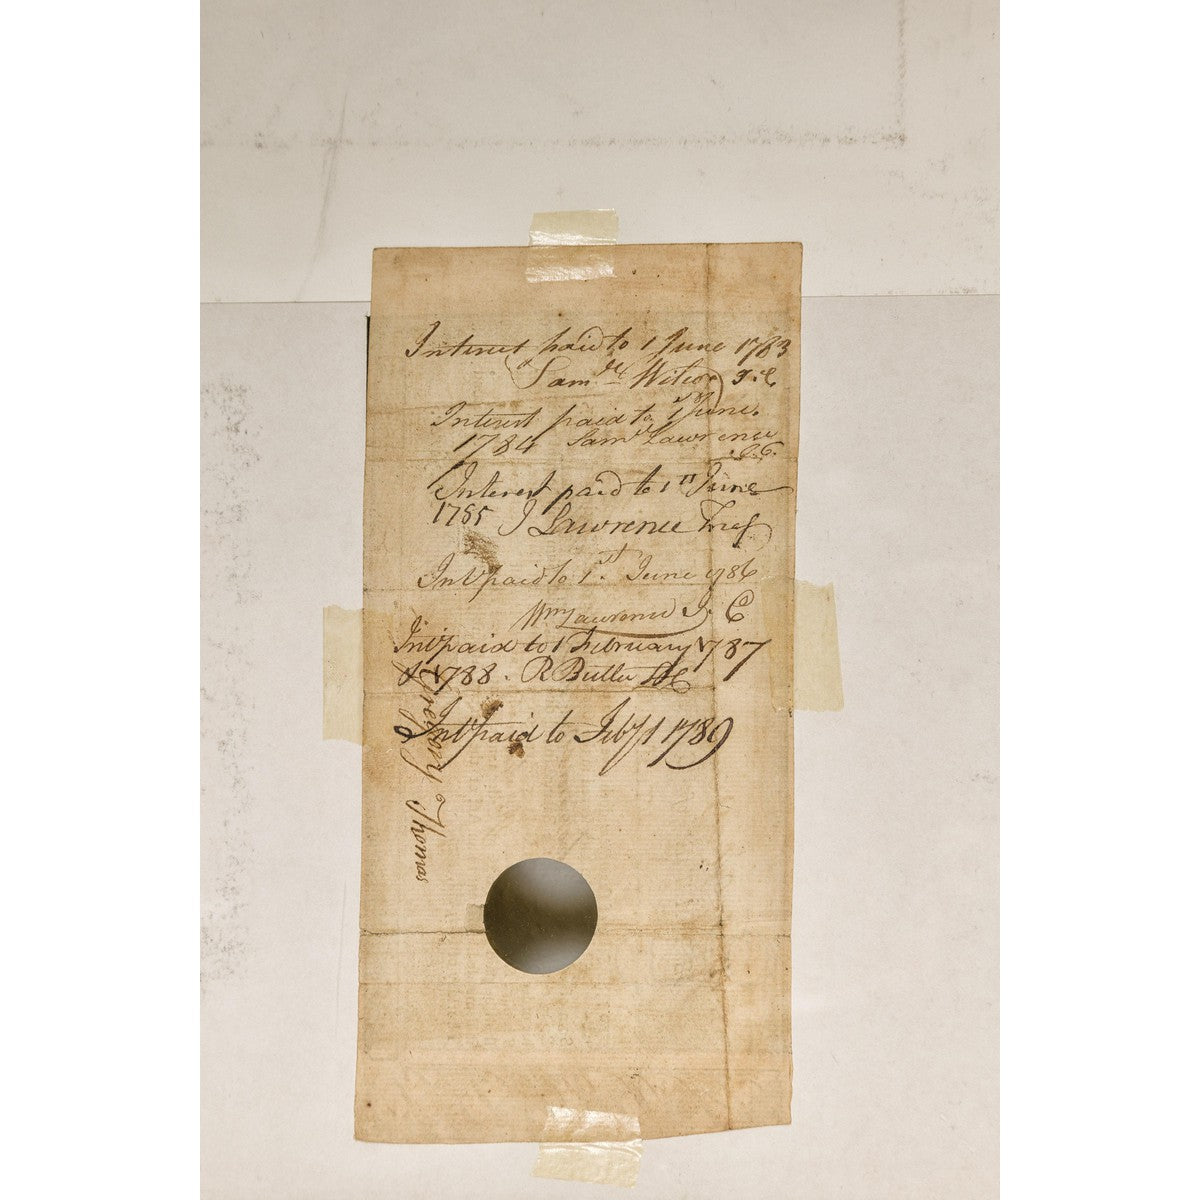 Interest paid to 1 June 1783
Saml Wilcox
Interest paid to 1st June.
1784 Saml Lawrence
Interest paid to 1st June
1785 J Lawrence Treas
Int paid to 1st. June 1786
Wm Lawrence J. C
Int paid to 1 February 1787
& 1788. R Butler
Int paid to Feby 1 1789
Gregory Thomas